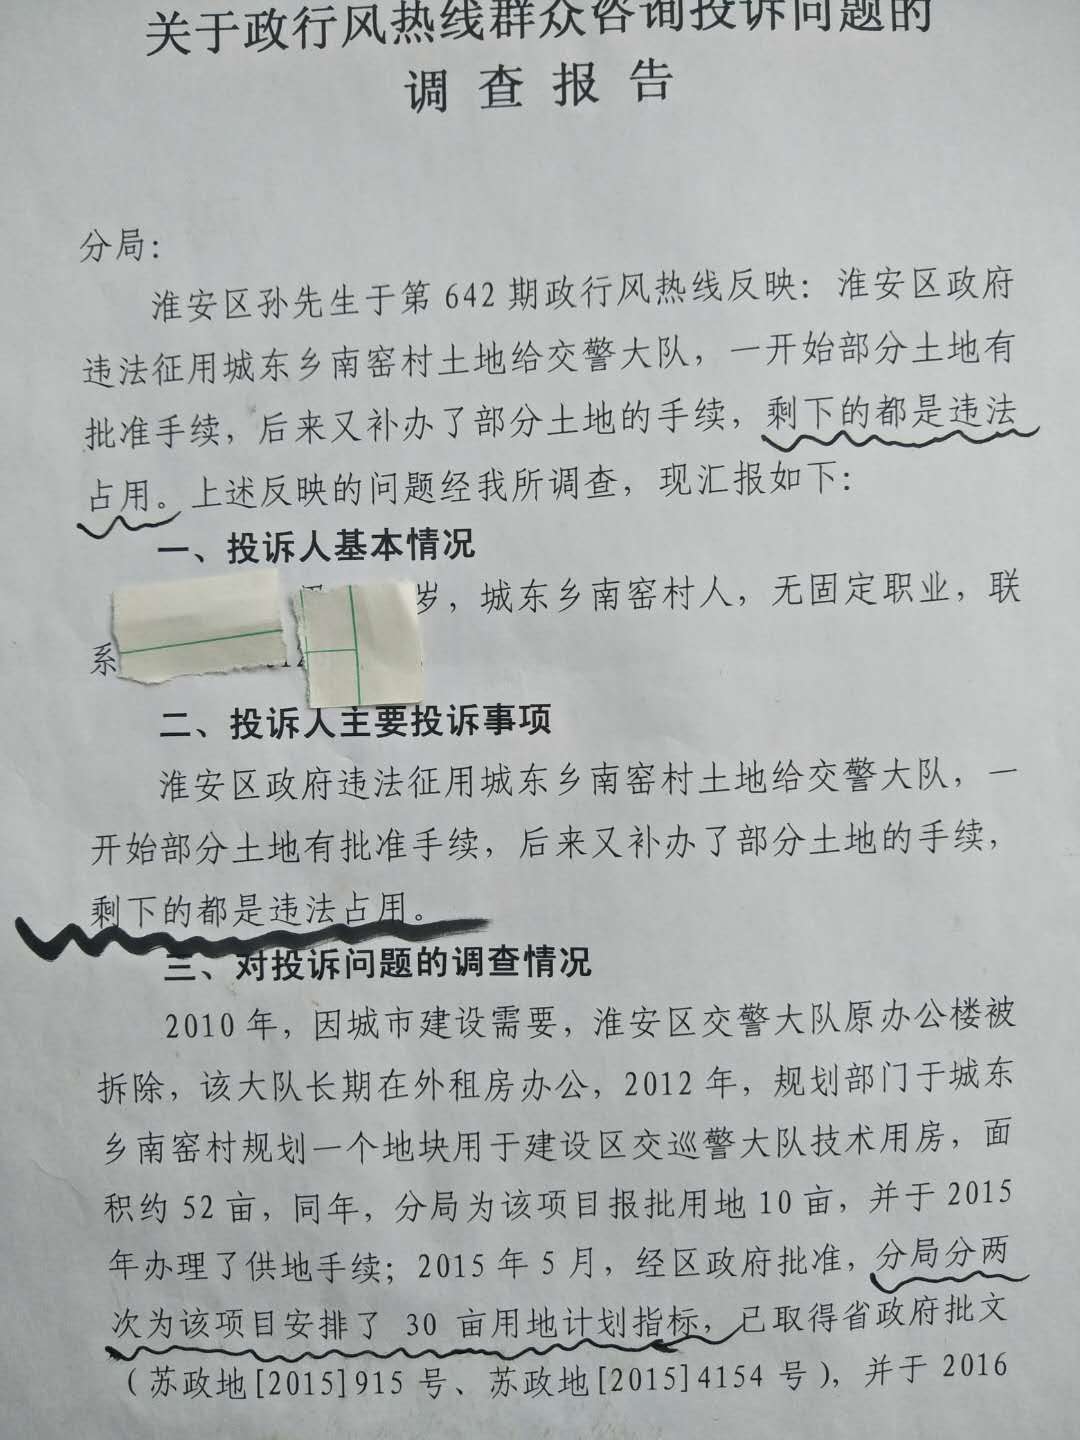 关于政行风热线群众咨询投诉问题的
调查报告
分局：
淮安区孙先生于第642期政行风热线反映：淮安区政府
违法征用城东乡南窑村土地给交警大队，一开始部分土地有
批准手续，后来又补办了部分土地的手续，剩下的都是违法
占用。上述反映的问题经我所调查，现汇报如下：
一、投诉人基本情况
岁，城东乡南窑村人，无固定职业，联
系
二、投诉人主要投诉事项
淮安区政府违法征用城东乡南窑村土地给交警大队，一
开始部分土地有批准手续，后来又补办了部分土地的手续，
剩下的都是违法占用。
三、对投诉问题的调查情况
2010年，因城市建设需要，淮安区交警大队原办公楼被
拆除，该大队长期在外租房办公，2012年，规划部门于城东
乡南窑村规划一个地块用于建设区交巡警大队技术用房，面
积约52亩，同年，分局为该项目报批用地10亩，并于2015
年办理了供地手续；2015年5月，经区政府批准，分局分两
次为该项目安排了 30 亩用地计划指标，已取得省政府批文
（苏政地[2015]915号、苏政地[2015]4154号），并于2016